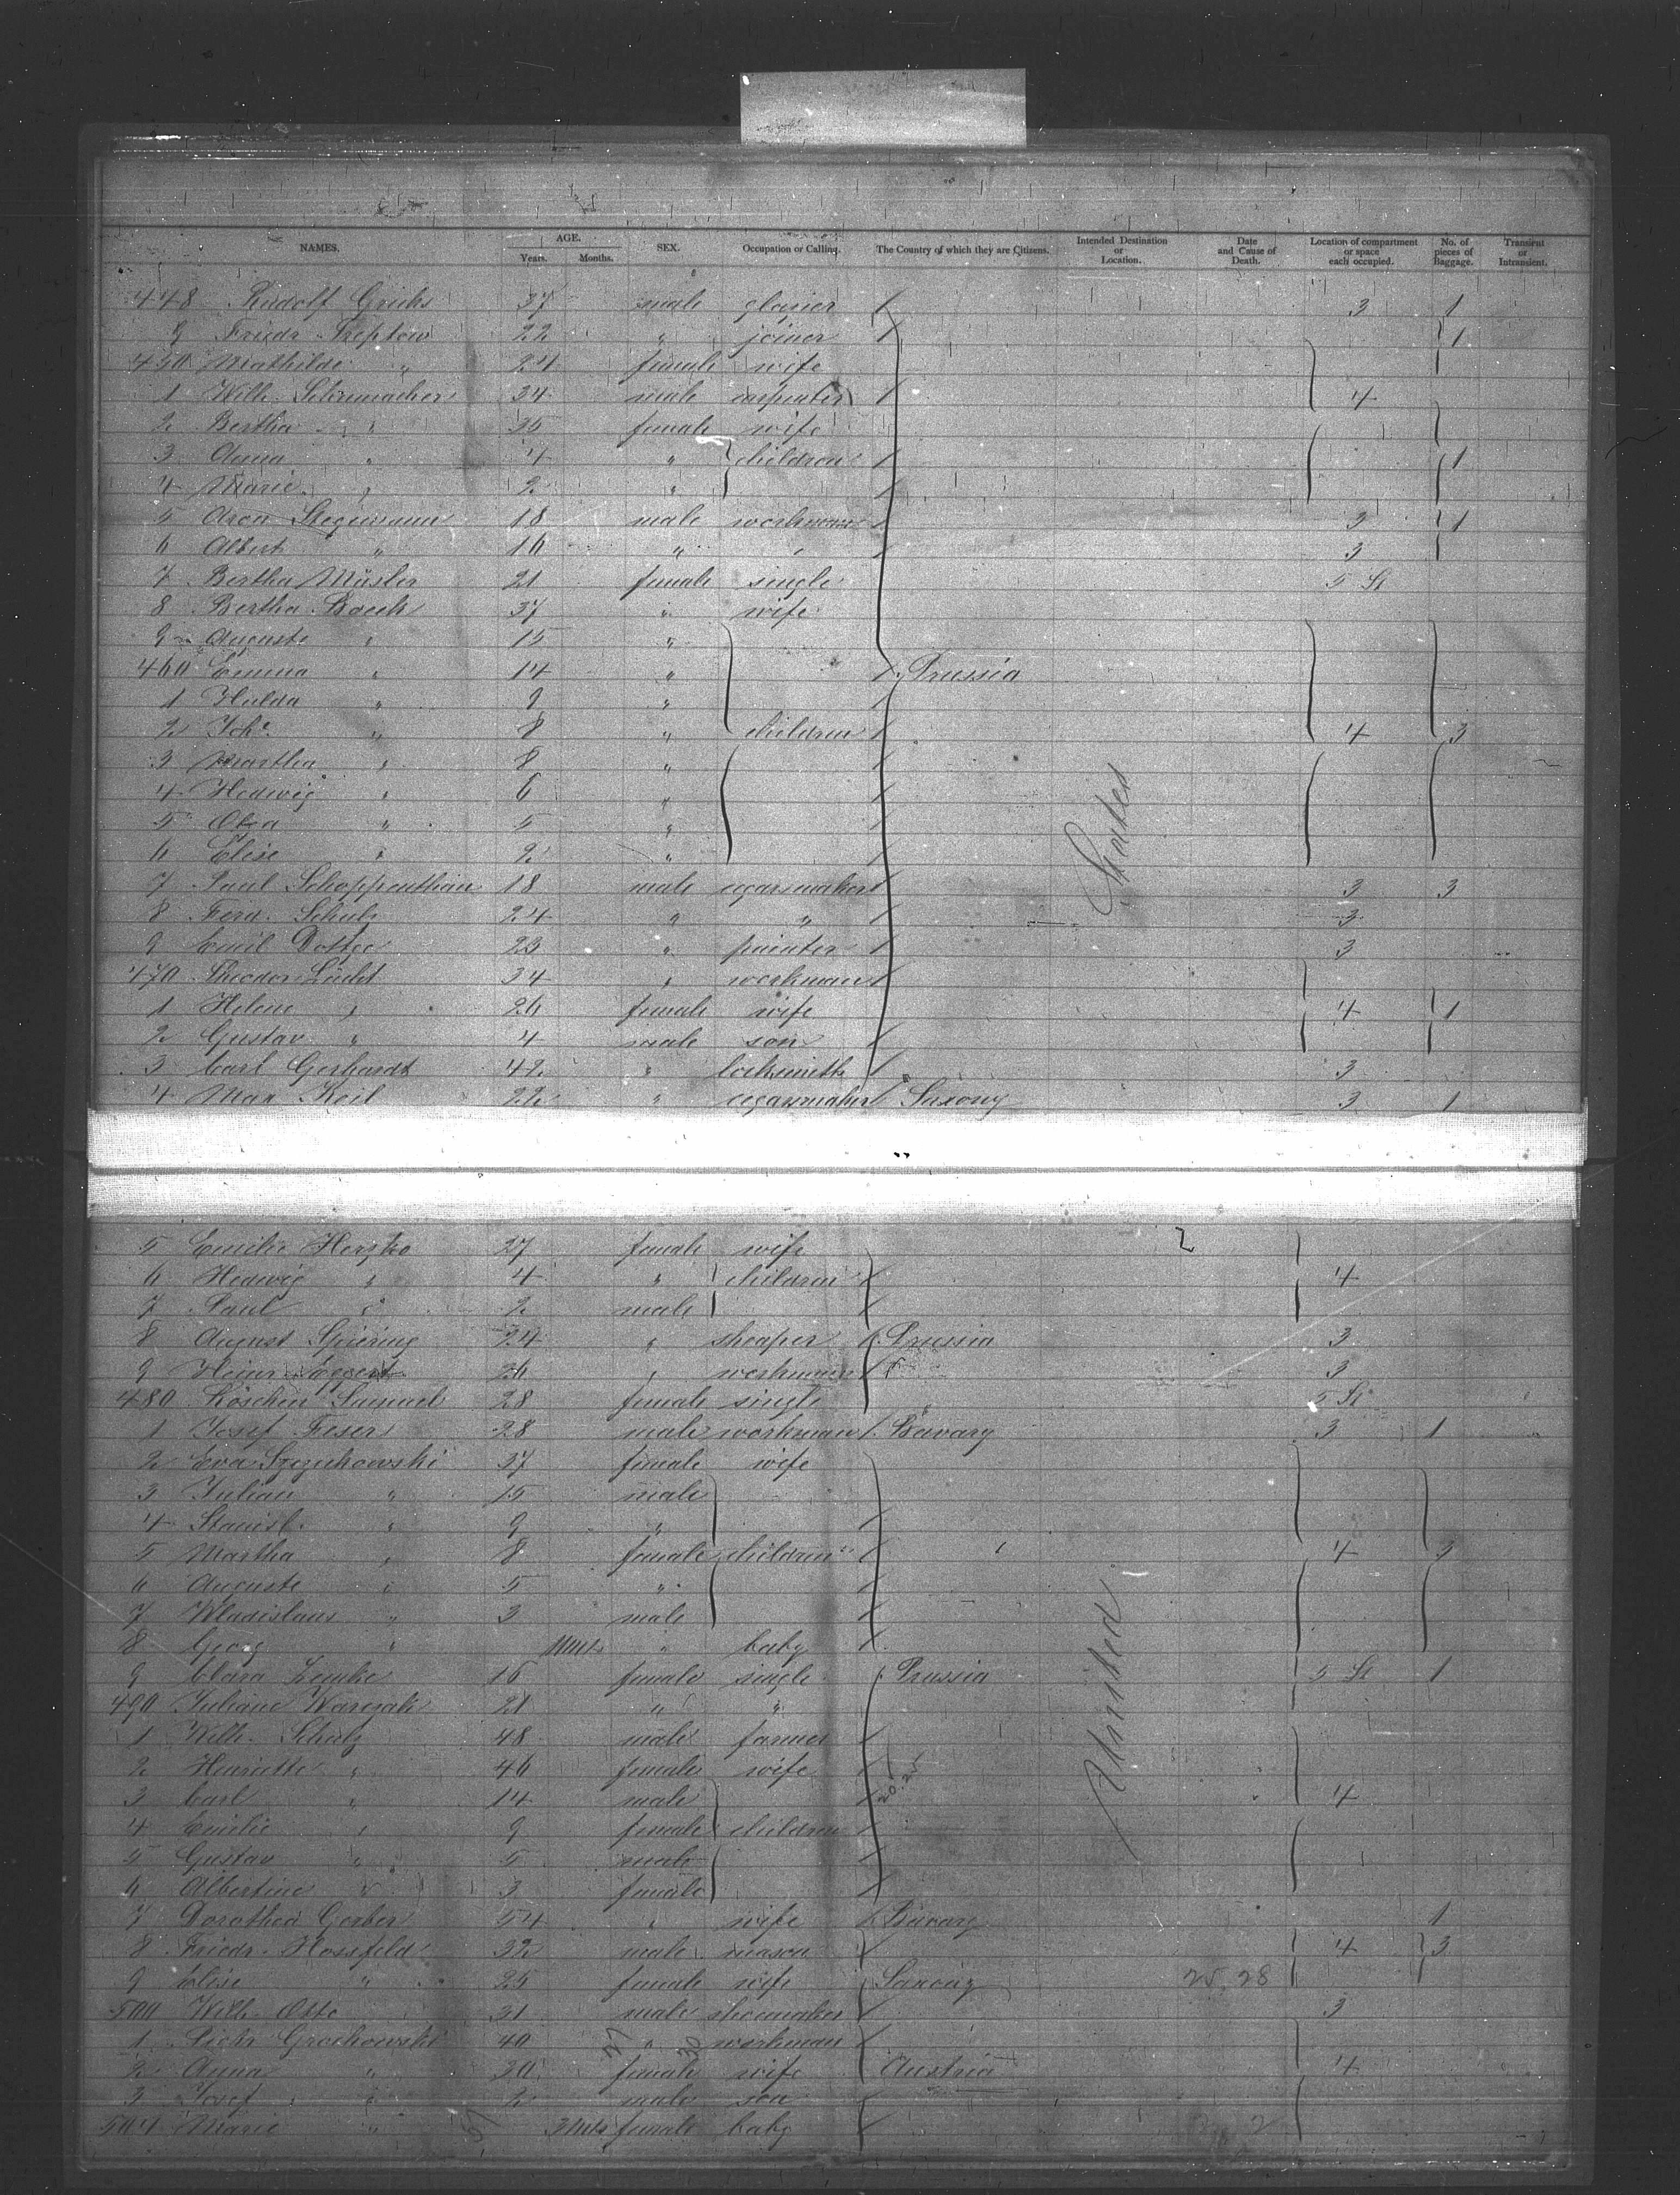 NAMES. AGE. Years. Months. SEX. Occupation or Calling. The Country of which they are Citizens. Intended Destination or Location. Date and Cause of Death. Location of compartment or space each occupied. No. of pieces of Baggage. Transient or Intransient.
448 Rudolf 37 male glazier 3 1
9 Friedr. Treptow 22 " joiner 1
450 Mathilde " 24 female wife
1 Wilh. Schumacher 34 male carpenter 4
2 Bertha " 35 female wife
3 Anna " 4 " children 1
4 Marie " 2 "
5 Aron Stegemann 18 male workman 3 1
6 Albert " 16 " " 3
7 Bertha Müsler 21 female single 5 St
8 Bertha 37 " wife
9 Auguste " 15 "
460 Emma " 14 " Prussia
1 Hulda " 9 "
2 Joh " 8 " children 4 3
3 Martha " 8 "
4 Hedwig " 6 "
5 " 5 "
6 Elise " 2 "
7 Paul 18 male cigarmaker 3 3
8 Ferd. Schulz 24 " " 3
9 Emil 23 " painter 3
470 Theodor Lücht 34 " workman
1 Helene " 26 female wife 4 1
2 Gustav " 4 male son
3 Carl Gerhardt 42 " locksmith 3
4 Max Keil 22 " cigarmaker Saxony 3 1
States
5 Emilie 27 female wife
6 Hedwig " 4 " children 4
7 Paul " 2 male
8 August Spiering 24 " Prussia 3
9 Heinr. Eggert 26 " workman 3
480 Röschen Samuel 28 female single 5 St
1 Josef Feser 28 male workman Bavary 3 1
2 Eva 37 female wife
3 Julian " 15 male
4 Stanisl. " 9 "
5 Martha " 8 female children 4 3
6 Auguste " 5 "
7 Wladislaus " 3 male
8 Georg " " baby
9 Clara Lemke 16 female single Prussia 5 St 1
490 Juliane 21 " "
1 Wilh. Schulz 48 male farmer
2 Henriette " 46 female wife
3 Carl " 14 male 20.25 4
4 Emilie " 9 female children
5 Gustav " 5 male
6 Albertine " 3 female
United
7 Dorothea Gerber 54 " wife Bavary 1
8 Friedr. Hossfeld 32 male mason 4 3
9 Elise " 25 female wife Saxony 25.28
500 Wilh. Otto 31 male shoemaker 3
1 Grochowski 40 " workman
2 Anna " 20 female wife Austria 4
3 Josef " 2 male son
504 Marie " 3 Mnts female baby